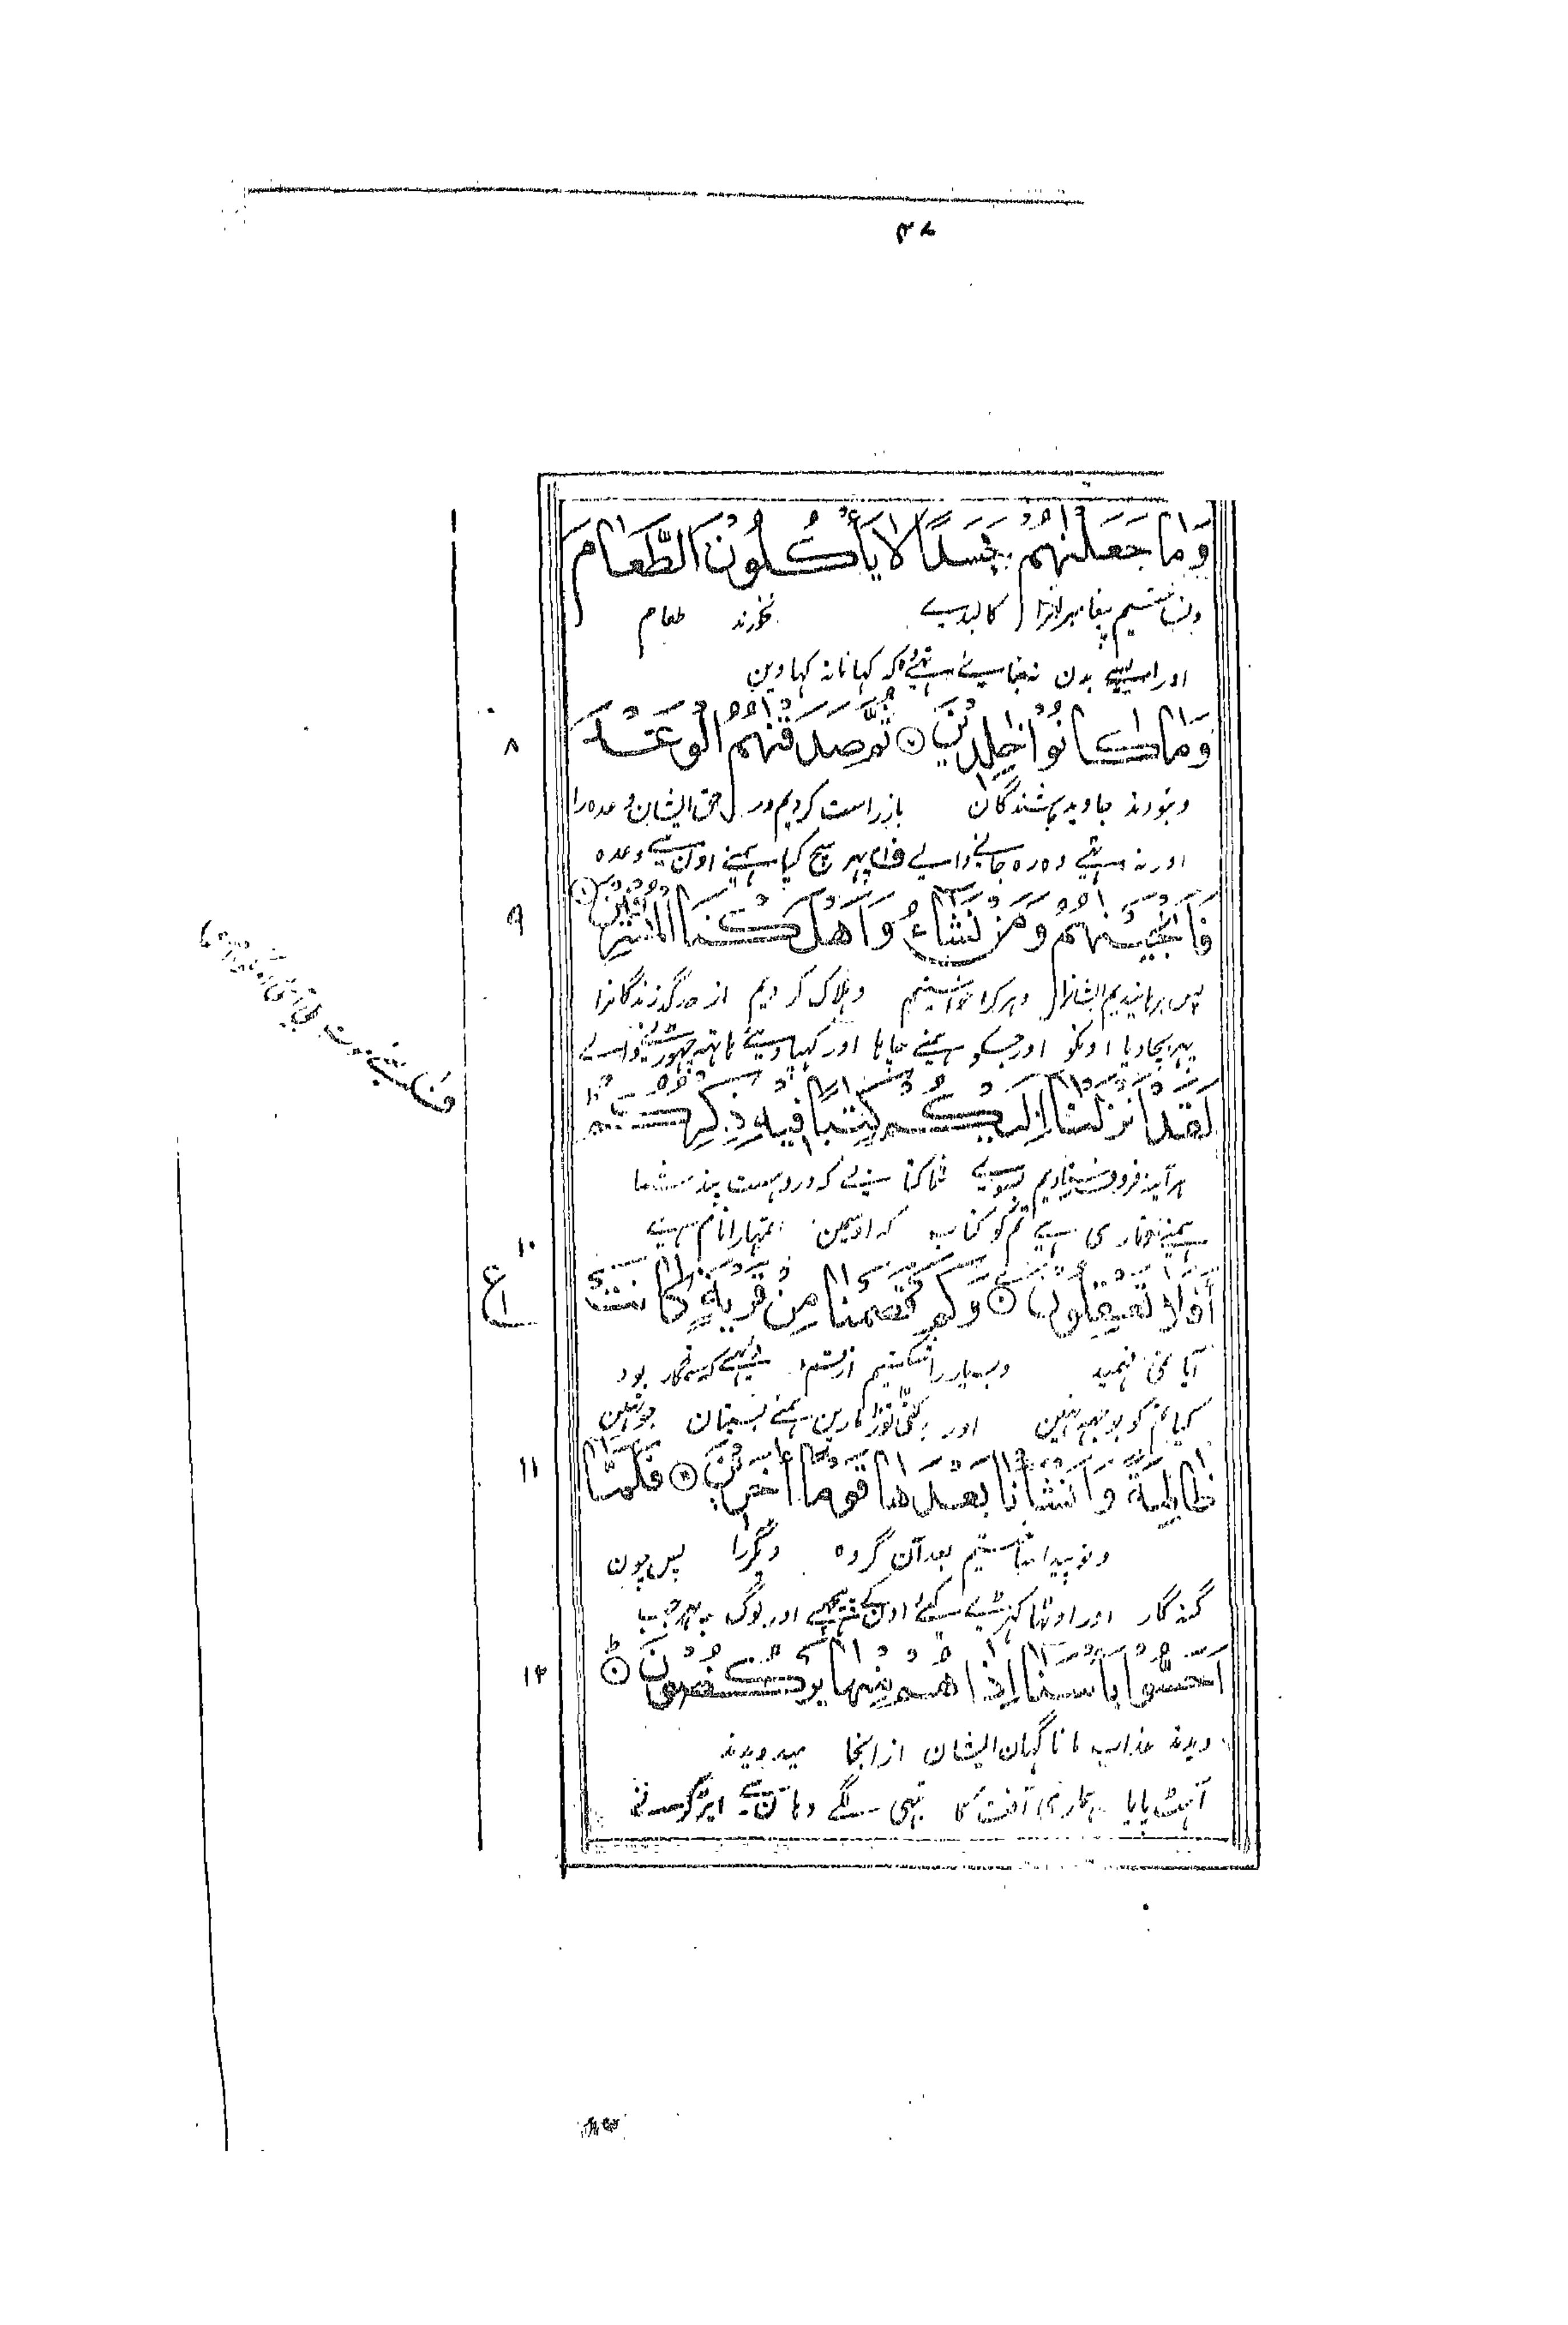 وَمَا جَعَلْنٰهُمْ جَسَدًا لَا يَأْكُلُوْنَ الطَّعَامَ
ونساختیم پیغامبرانرا کالبدیے نخورند طعام
اور ایسے بدن نہ بنایے تہے کہ کہانا نہ کہاوین
وَمَا كَانُوْا خٰلِدِيْنَ ۞ ثُمَّ صَدَقْنٰهُمُ الْوَعْدَ
۸
ونبودند جاوید باشندگان باز راست کردیم در حق ایشان وعده را
اور نہ تہے وہ رہ جانے والے ف پہر سچ کیا ہمنے اون سے وعدہ
فَاَنْجَيْنٰهُمْ وَمَنْ نَّشَآءُ وَاَهْلَكْنَا الْمُسْرِفِيْنَ ۞
۹
پس برہانیدیم ایشانرا وہرکرا خواستیم وہلاک کردیم از حد گذرندگانرا
پہر بچا دیا اونکو اور جسکو ہمنے چاہا اور کہپا دیے ہاتہ چہوڑنے والے
لَقَدْ اَنْزَلْنَا اِلَيْكُمْ كِتٰبًا فِيْهِ ذِكْرُكُمْ
ہر آینہ فرو فرستادیم بسویے شما کتابیے کہ دروست پند شما
ہمنے اوتاری ہے تم کو کتاب کہ اوسمین تمہارا نام ہے
۱۰
ع
اَفَلَا تَعْقِلُوْنَ ۞ وَكَمْ قَصَمْنَا مِنْ قَرْيَةٍ كَانَتْ
آیا نمی فہمید وبسیار را شکستیم از دیہے کہ ستمگار بود
کیا تم کو بوجہ نہین اور کتنی توڑ مارین ہمنے بستیان جو تہین
ظَالِمَةً وَّاَنْشَاْنَا بَعْدَهَا قَوْمًا اٰخَرِيْنَ ۞ فَلَمَّآ
۱۱
ونو پیدا ساختیم بعد آن گروه دیگررا پس چون
گنہگار اور اوٹہا کہڑے کیے اون کے پیچہے اور لوگ پہر جب
اَحَسُّوْا بَاْسَنَا اِذَا هُمْ مِنْهَا يَرْكُضُوْنَ ۞
۱۲
دیدند عذاب ما ناگہان ایشان ازانجا میدویدند
آہٹ پایا ہماری آفت کا تبہی لگے وہان سے ایڑ کرنے